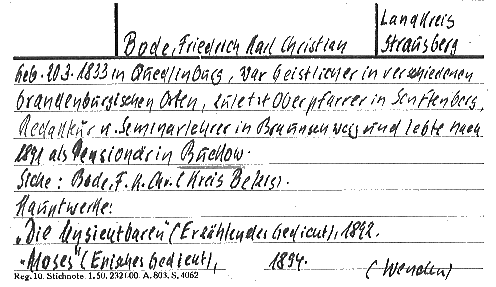 Bode, Friedrich Karl Christian
Landkreis
Strausberg
geb. 20.3.1833 in Quedlinburg, war Geistlicher in verschiedenen
brandenburgischen Orten, zuletzt Oberpfarrer in Senftenberg,
Redakteur u. Seminarlehrer in Braunschweig und lebte nach
1891 als Pensionär in Buckow.
Siehe: Bode, F. K. Chr. (Kreis
Hauptwerke:
"Die Unsichtbaren" (Erzählendes Gedicht), 1892.
"Moses" (Episches Gedicht), 1894. (Wenden)
Reg. 10. Stichnote. 1. 50. 2321 00. A. 803. S. 4062